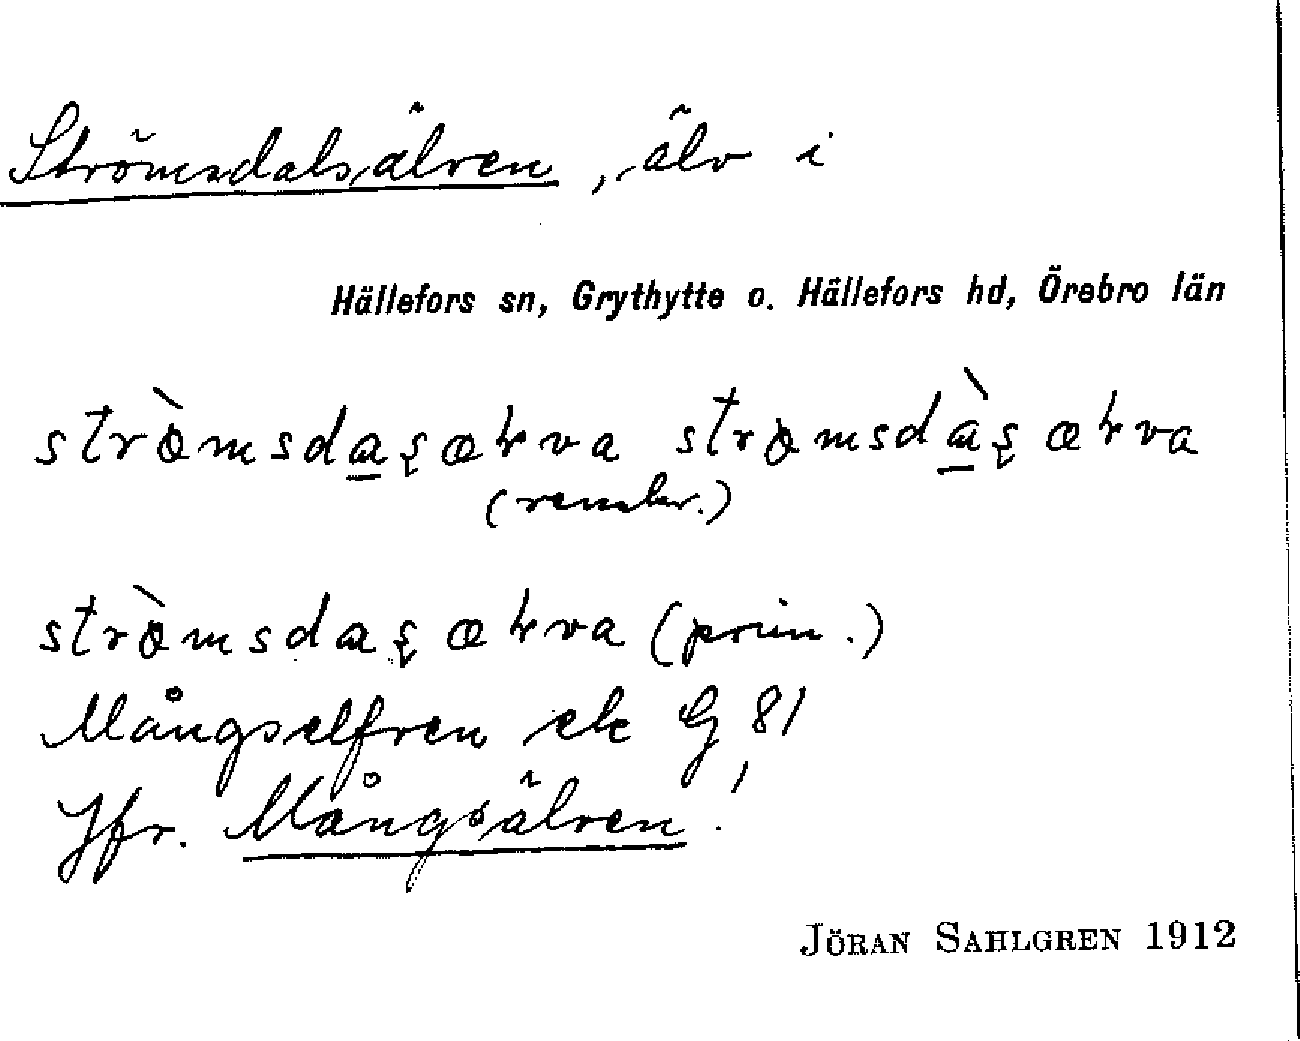 Strömsdalsälven, älv i
Hällefors sn, Grythytte o. Hällefors hd, Örebro län
strö̀msdaşæɫva strömsdàşæɫva
strö̀msdaşæɫva (prim.)
Mångselfren ek G 81
Jfr. Mångsälven!
JÖRAN SAHLGREN 1912